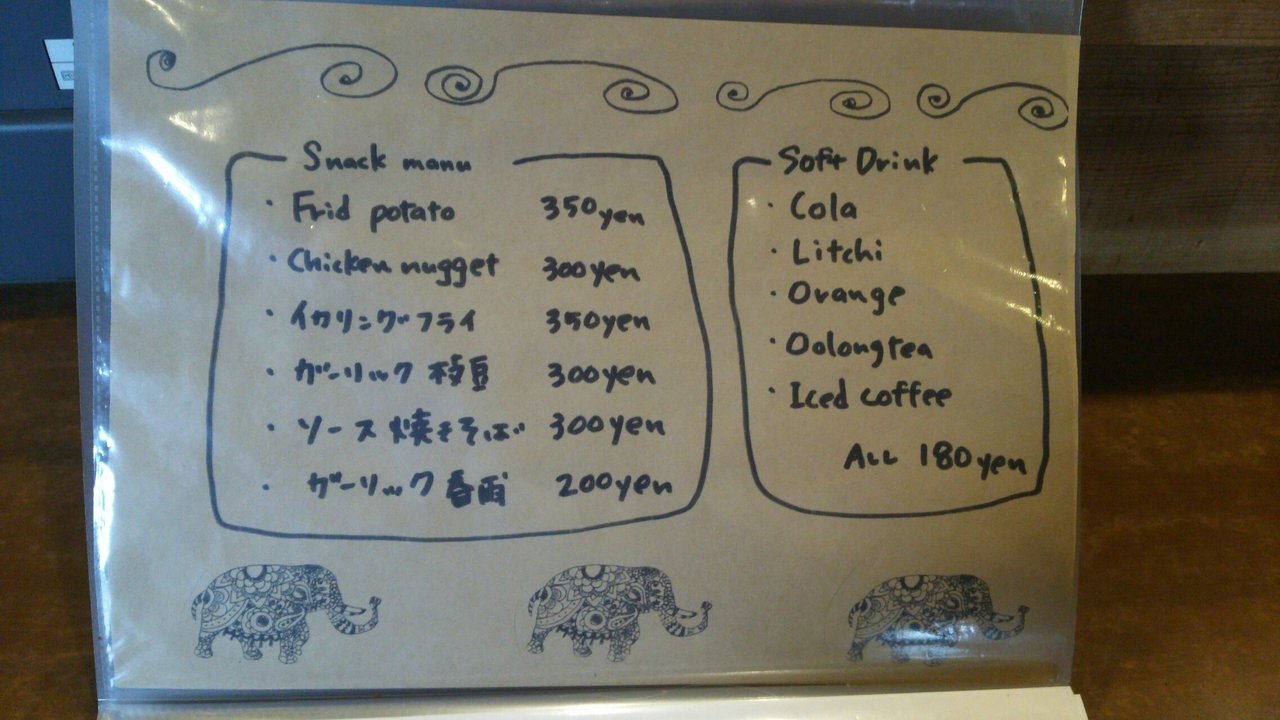 Snack manu
・Frid potato 350yen
・Chicken nugget 300yen
・イカリングフライ 350yen
・ガーリック 枝豆 300yen
・ソース 焼きそば 300yen
・ガーリック 春雨 200yen
Soft Drink
・Cola
・Litchi
・Orange
・Oolongtea
・Iced coffee
ALL 180yen